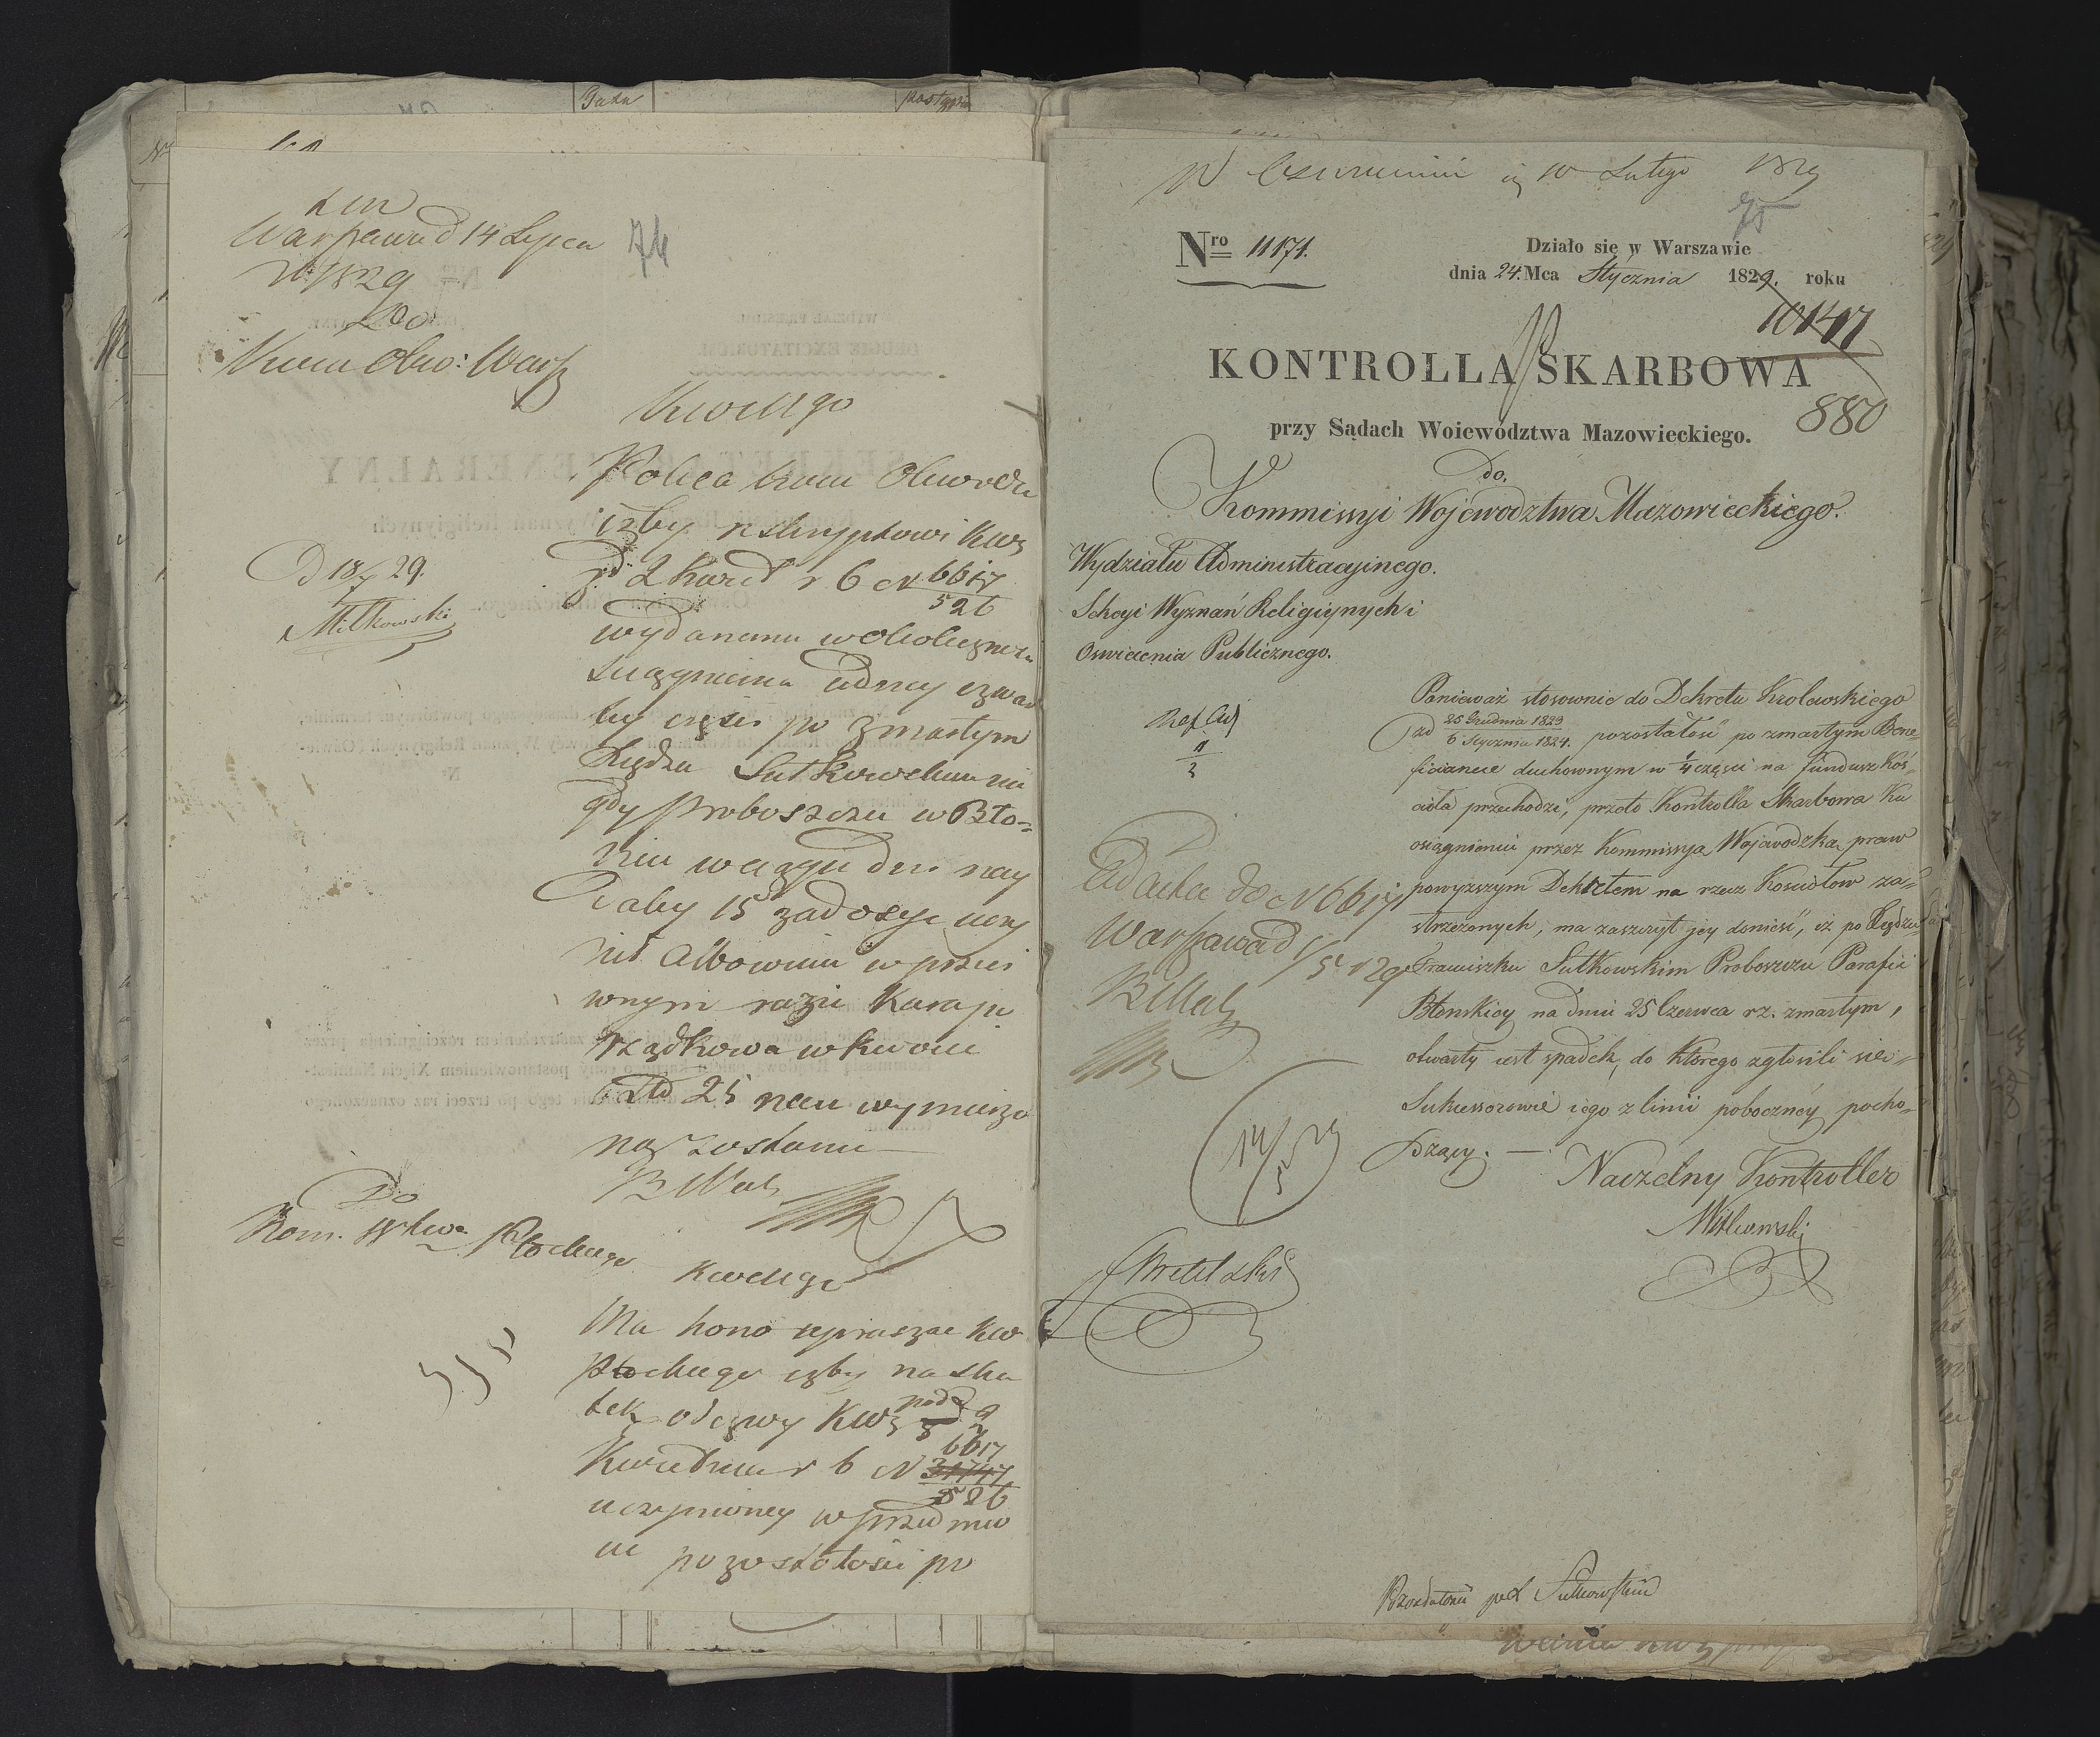 74
Warszawa d 14 Lipca
1829
Do
Kom Obw: Warsz
KWMgo
Poleca Kom Obwodu
iżby reskryptowi KW
d 2 Kwiet r b N 6617
526
wydanemu w okoliczności
ściągnienia czwar
tey części po zmarłym
Xiędzu Sutkowskim nie
gdy Proboszczu w Bło-
niu w ciągu dni nay
daley 15 zadosyć uczy
nił albowiem w przeci
wnym razie kara po
rządkowa w kwocie
Złp 25 wymierzo
ną zostanie
D 18/7 29.
Mitkowski
Do
Kom. Wtwa Płockiego
KWMgo
Ma honor upraszać KW
Płockiego iżby na sku
tek odezwy KW pod d 2
Kwietnia r b N 6617
526
uczynioney w przedmio
cie pozostałości po
W Lutego 1829
75
Nro 11171.
Działo się w Warszawie
dnia 24. Mca Stycznia 1829. roku
10147
KONTROLLA SKARBOWA
880
przy Sądach Woiewództwa Mazowieckiego.
do.
Kommissyi Wojewodztwa Mazowieckiego.
Wydziału Administracyinego.
Sekcyi Wyznań Religiynych i
Oswiecenia Publicznego.
Ponieważ stosownie do Dekretu Krolewskiego
od 25 Grudnia 1823
6 Stycznia 1824. pozostałość po zmarłym Bene-
ficiancie duchownym w 1/4 części na fundusz Koś-
cioła przechodzi, przeto Kontrolla Skarbowa Ku
osiągnieniu przez Kommissyą Wojewodzką praw
powyższym Dekretem na rzecz Kosciołow za-
strzeżonych, ma zaszczyt jey donieść, iż po Xiędzu
Franciszku Sutkowskim Proboszczu Parafii
Błonskiey na dniu 25 Czerwca r.z. zmarłym,
otwarty iest spadek, do którego zgłosili się
Sukcessorowie iego z linii poboczney pocho-
dzący. —
Naczelny Kontroller
Mitkowski
Ad acta do N 6617
Warszawa d 1/5 829
14/5 29
Pozostałość po X Sutkowskim